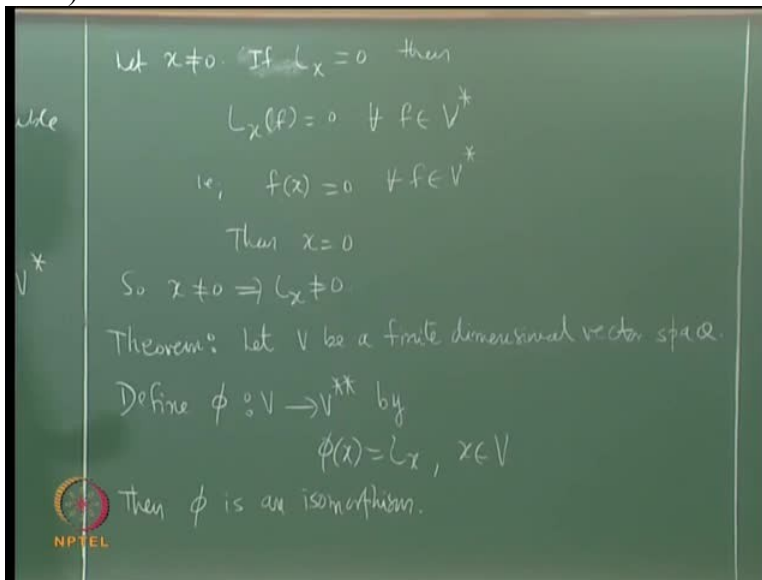 Let x≠0. If L_x = 0 then
L_x(f) = 0 ∀ f ∈ V*
ie, f(x) = 0 ∀ f ∈ V*
Then x = 0
V*
So x ≠ 0 ⇒ L_x ≠ 0.
Theorem: Let V be a finite dimensional vector space.
Define φ : V → V** by
φ(x) = L_x, x ∈ V
Then φ is an isomorphism.
NPTEL